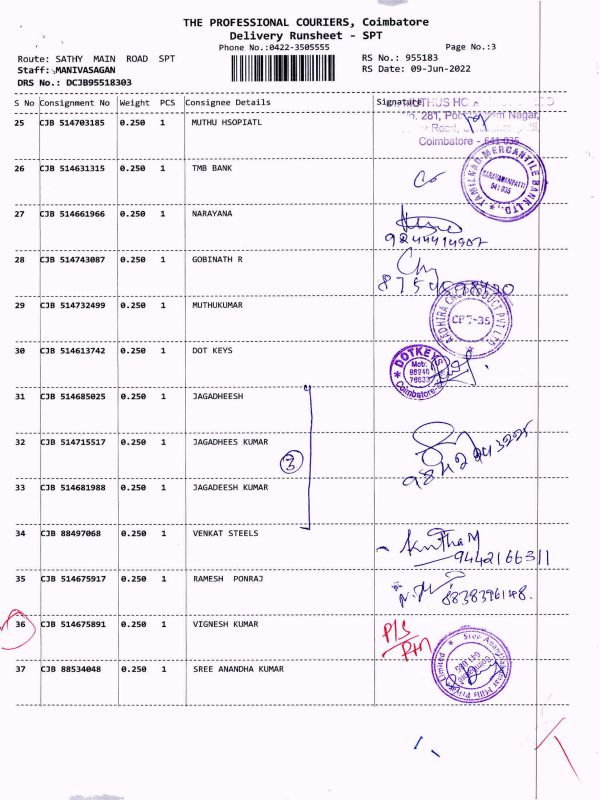 THE PROFESSIONAL COURIERS, Coimbatore
Delivery Runsheet - SPT
Phone No.:0422-3505555
Page No.:3
Route: SATHY MAIN ROAD SPT
RS No.: 955183
Staff: MANIVASAGAN
RS Date: 09-Jun-2022
DRS No.: DCJB95518303
S No Consignment No Weight PCS Consignee Details Signature
25 CJB 514703185 0.250 1 MUTHU HSOPIATL
281,
Nagar,
Road,
Coimbatore - 641 035
26 CJB 514631315 0.250 1 TMB BANK
TAMILNAD MERCANTILE BANK LTD.,
SARAVANAMPATTI
641 035
27 CJB 514661966 0.250 1 NARAYANA
9244414907
28 CJB 514743087 0.250 1 GOBINATH R
29 CJB 514732499 0.250 1 MUTHUKUMAR
CBE-35
30 CJB 514613742 0.250 1 DOT KEYS
DOTKEYS
Mob:
Coimbatore
31 CJB 514685025 0.250 1 JAGADHEESH
32 CJB 514715517 0.250 1 JAGADHEES KUMAR
3
9842243225
33 CJB 514681988 0.250 1 JAGADEESH KUMAR
34 CJB 88497068 0.250 1 VENKAT STEELS
9442166311
35 CJB 514675917 0.250 1 RAMESH PONRAJ
8838396148.
36 CJB 514675891 0.250 1 VIGNESH KUMAR
P/S
37 CJB 88534048 0.250 1 SREE ANANDHA KUMAR
Mills Private Limited